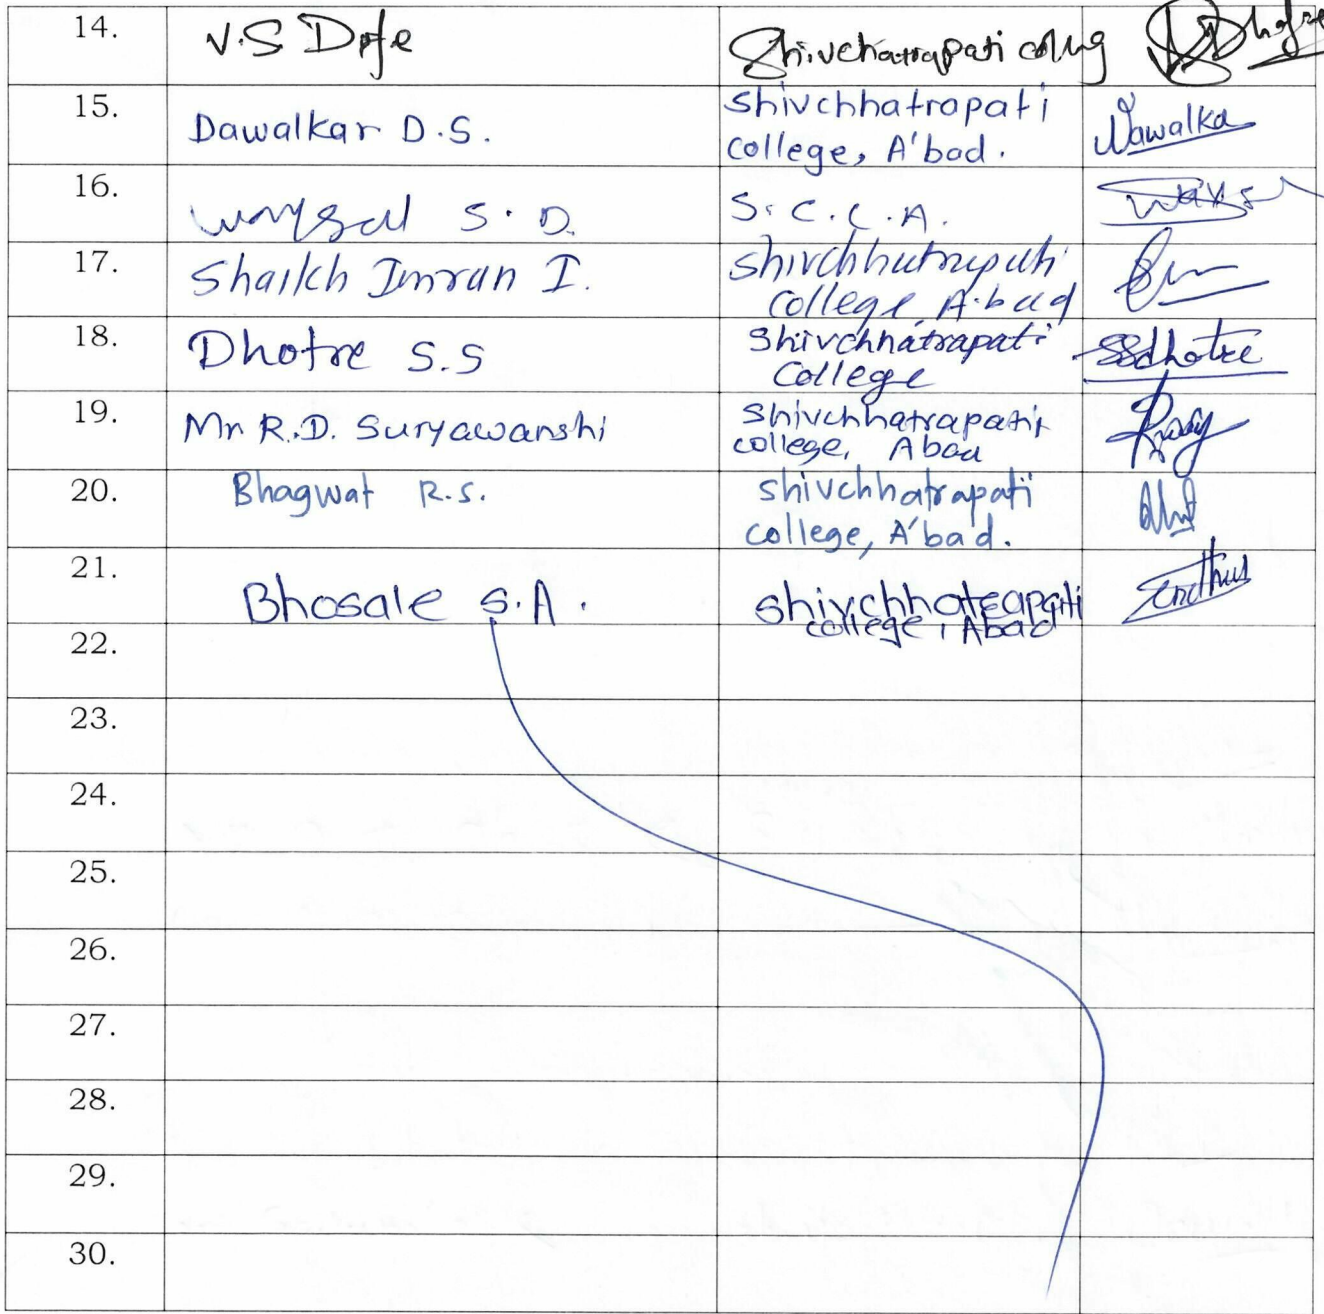 14. V.S Shivchatrapati
15. Dawalkar D.S. Shivchhatrapati
college, A'bad. Dawalka
16. S. D. S. C. C. A.
17. Shaikh Imran I. Shivchhatrapati
college, A.bad
18. Dhotre S.S Shivchhatrapati
College SSdhotre
19. Mr R.D. Suryawanshi Shivchhatrapati
college, Abad
20. Bhagwat R.S. Shivchhatrapati
college, A'bad.
21. Bhosale S.A. Shivchhatrapati
college, Abad
22.
23.
24.
25.
26.
27.
28.
29.
30.